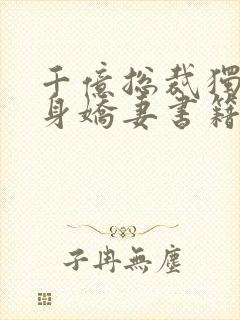 千億總裁獨
身嬌妻書籍
子冉無塵